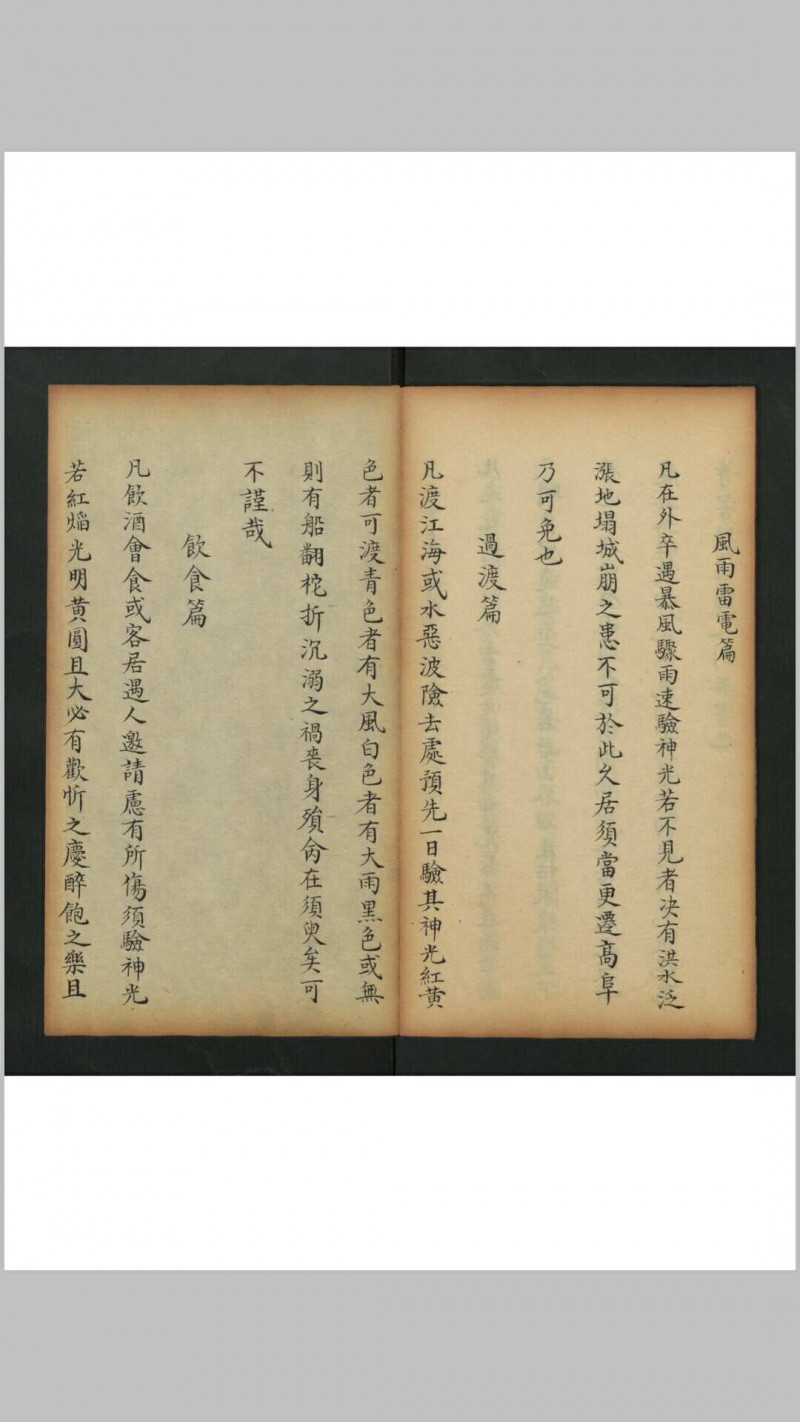 風雨雷電篇
凡在外卒遇暴風驟雨速驗神光若不見者决有洪水泛
漲地塌城崩之患不可於此久居須當更遷髙阜
乃可免也
過渡篇
凡渡江海或水惡波險去處預先一日驗其神光紅黄
色者可渡青色者有大風白色者有大雨黒色或無
則有船翻柁折沉溺之禍喪身殞命在須臾矣可
不謹哉
飲食篇
凡飲酒會食或客居遇人邀請慮有所傷須驗神光
若紅焰光明黄圓且大必有歡忻之慶醉飽之樂且